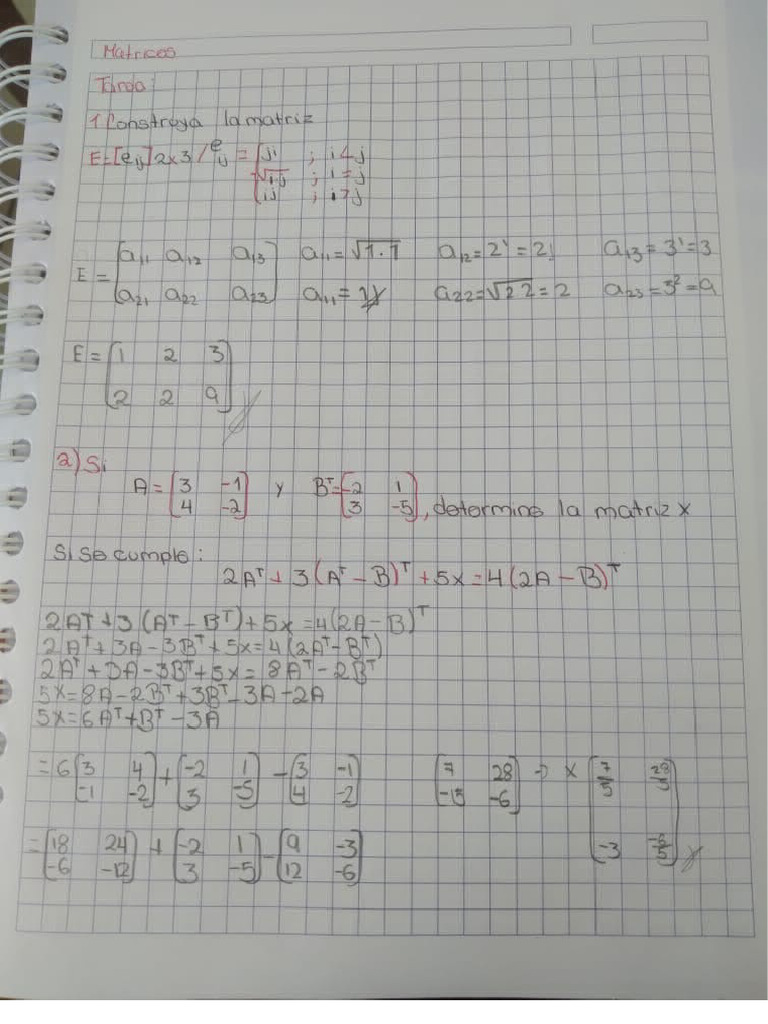 Matrices
Tarea:
1. Construya la matriz
E=[eij]2x3 / eij = { j^i ; i<j
√ij ; i=j
ij ; i>j
E = [a11 a12 a13 a11=√1·1 a12=2^1=2 a13=3^1=3
a21 a22 a23] a11=1 a22=√2 2=2 a23=3^2=9
E = [1 2 3
2 2 9]
2) Si
A = [3 -1 y B^T=[-2 1
4 -2] 3 -5], determine la matriz x
Si se cumple:
2A^T + 3(A^T - B)^T + 5x = 4(2A - B)^T
2A^T + 3(A^T - B^T) + 5x = 4(2A - B)^T
2A^T + 3A - 3B^T + 5x = 4(2A^T - B^T)
2A^T + 3A - 3B^T + 5x = 8A^T - 2B^T
5x = 8A - 2B^T + 3B^T - 3A - 2A
5x = 6A^T + B^T - 3A
= 6[3 4 + [-2 1 - [3 -1 [7 28 → x [7/5 28/5
-1 -2] 3 -5] 4 -2] -15 -6]
= [18 24 + [-2 1 - [9 -3 -3 -6/5]
-6 -12] 3 -5] 12 -6]